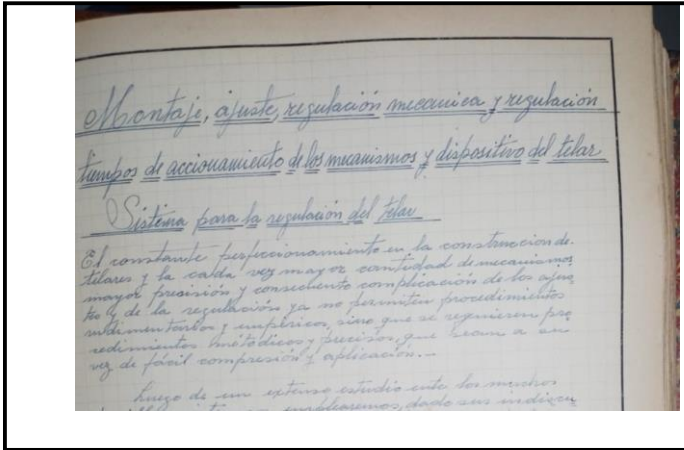 Montaje, ajuste, regulación mecanica y regulación
tiempos de accionamiento de los mecanismos y dispositivo del telar
Sistema para la regulación del telar
El constante perfeccionamiento en la construccion de
telares y la cada vez mayor cantidad de mecanismos
mayor presisión y consecuente complicación de los ajus
tes y de la regulación ya no permiten procedimientos
rudimentarios y empíricos, sino que se requieren pro
cedimientos metódicos y precisos, que sean a su
vez de fácil compresión y aplicación.-
Luego de un extenso estudio ente los muchos
emplearemos, dado sus indiscu